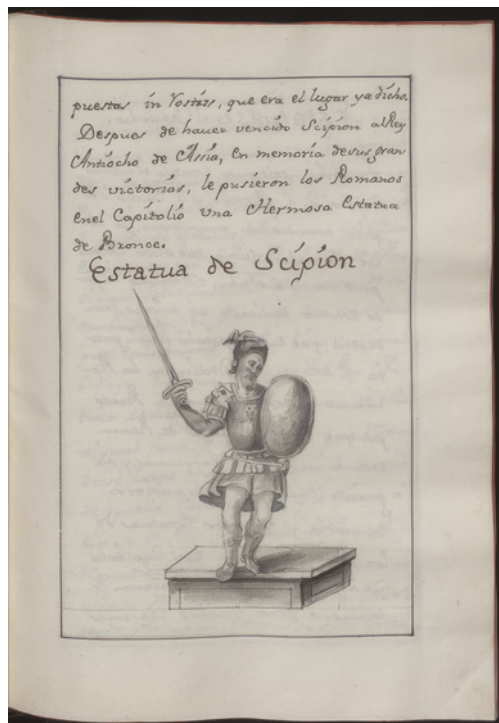 puestas in Rostris, que era el lugar ya dicho.
Despues de hauer vencido Scipion al Rey
Antiocho de Assia, en memoria de sus gran
des victorias, le pusieron los Romanos
en el Capitolio una Hermosa Estatua
de Bronce.
Estatua de Scipion